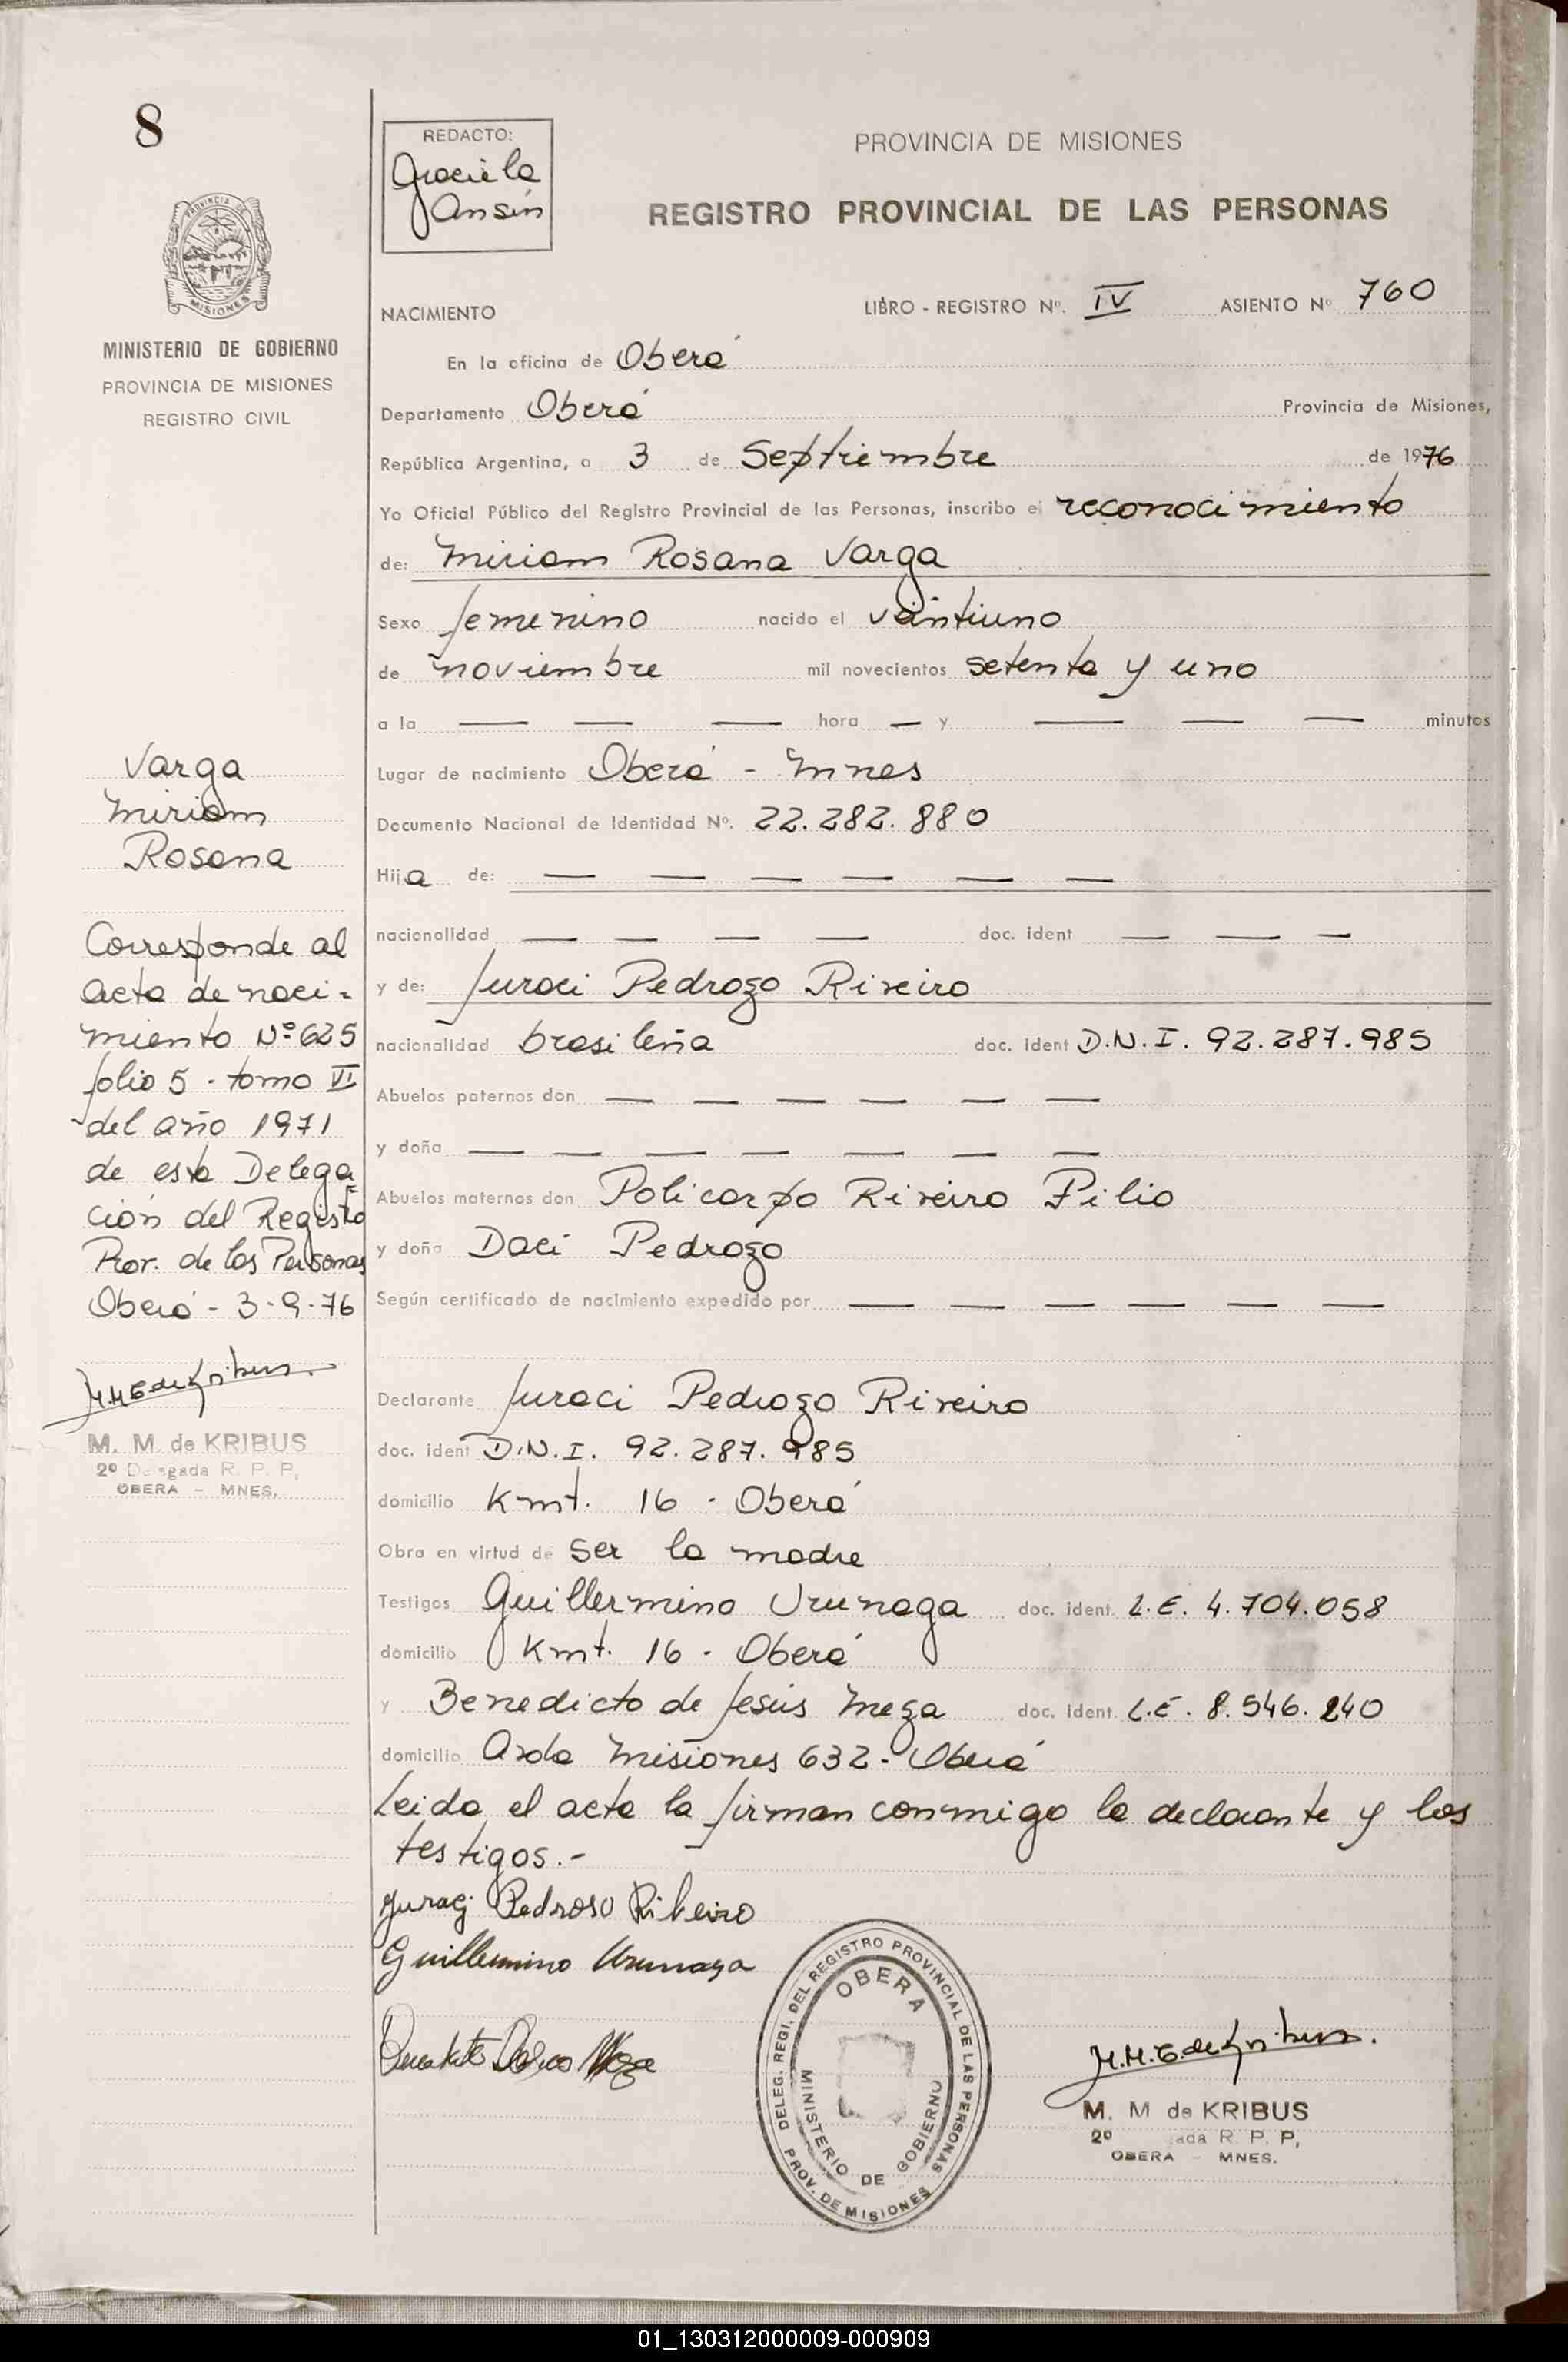 8
REDACTO:
Graciela
Ansin
PROVINCIA DE MISIONES
REGISTRO PROVINCIAL DE LAS PERSONAS
PROVINCIA DE
MISIONES
MINISTERIO DE GOBIERNO
PROVINCIA DE MISIONES
REGISTRO CIVIL
NACIMIENTO LIBRO - REGISTRO Nº. IV ASIENTO Nº 760
En la oficina de Oberá
Departamento Oberá Provincia de Misiones,
República Argentina, a 3 de Septiembre de 1976
Yo Oficial Público del Registro Provincial de las Personas, inscribo el reconocimiento
de: Miriam Rosana Varga
Sexo femenino nacido el veintiuno
de noviembre mil novecientos setenta y uno
a la — — — hora — y — — — minutos
Lugar de nacimiento Oberá - Mnes
Documento Nacional de Identidad Nº. 22.282.880
Hija de: — — — — — —
nacionalidad — — — — doc. ident — — —
y de: Juraci Pedrozo Riveiro
nacionalidad brasileña doc. ident D.N.I. 92.287.985
Abuelos paternos don — — — — — —
y doña — — — — — — —
Abuelos maternos don Policarpo Riveiro Filio
y doña Daci Pedrozo
Según certificado de nacimiento expedido por — — — — — —
Declarante Juraci Pedrozo Riveiro
doc. ident D.N.I. 92.287.985
domicilio Kmt. 16 - Oberá
Obra en virtud de ser la madre
Testigos Guillermino Urunaga doc. ident. L.E. 4.704.058
domicilio Kmt. 16 - Oberá
y Benedicto de Jesús Meza doc. ident. L.E. 8.546.240
domicilio Avda Misiones 632 - Oberá
Leida el acta la firman conmigo la declarante y los
testigos.-
Juraci Pedroso Ribeiro
Guillermino Urunaga
Meza
Varga
Miriam
Rosana
Corresponde al
acta de naci=
miento Nº 625
folio 5 - tomo VI
del año 1971
de esta Delega=
ción del Registro
Prov. de las Personas
Oberá - 3-9-76
M.M.E de Kribus.
M. M. de KRIBUS
2º Delegada R. P. P,
OBERA - MNES.
DELEG. REGI. DEL REGISTRO PROVINCIAL DE LAS PERSONAS
PROV. DE MISIONES
OBERA
MINISTERIO DE GOBIERNO
M.M.E. de Kribus.
M. M de KRIBUS
2º ada R. P. P,
OBERA - MNES.
01_130312000009-000909